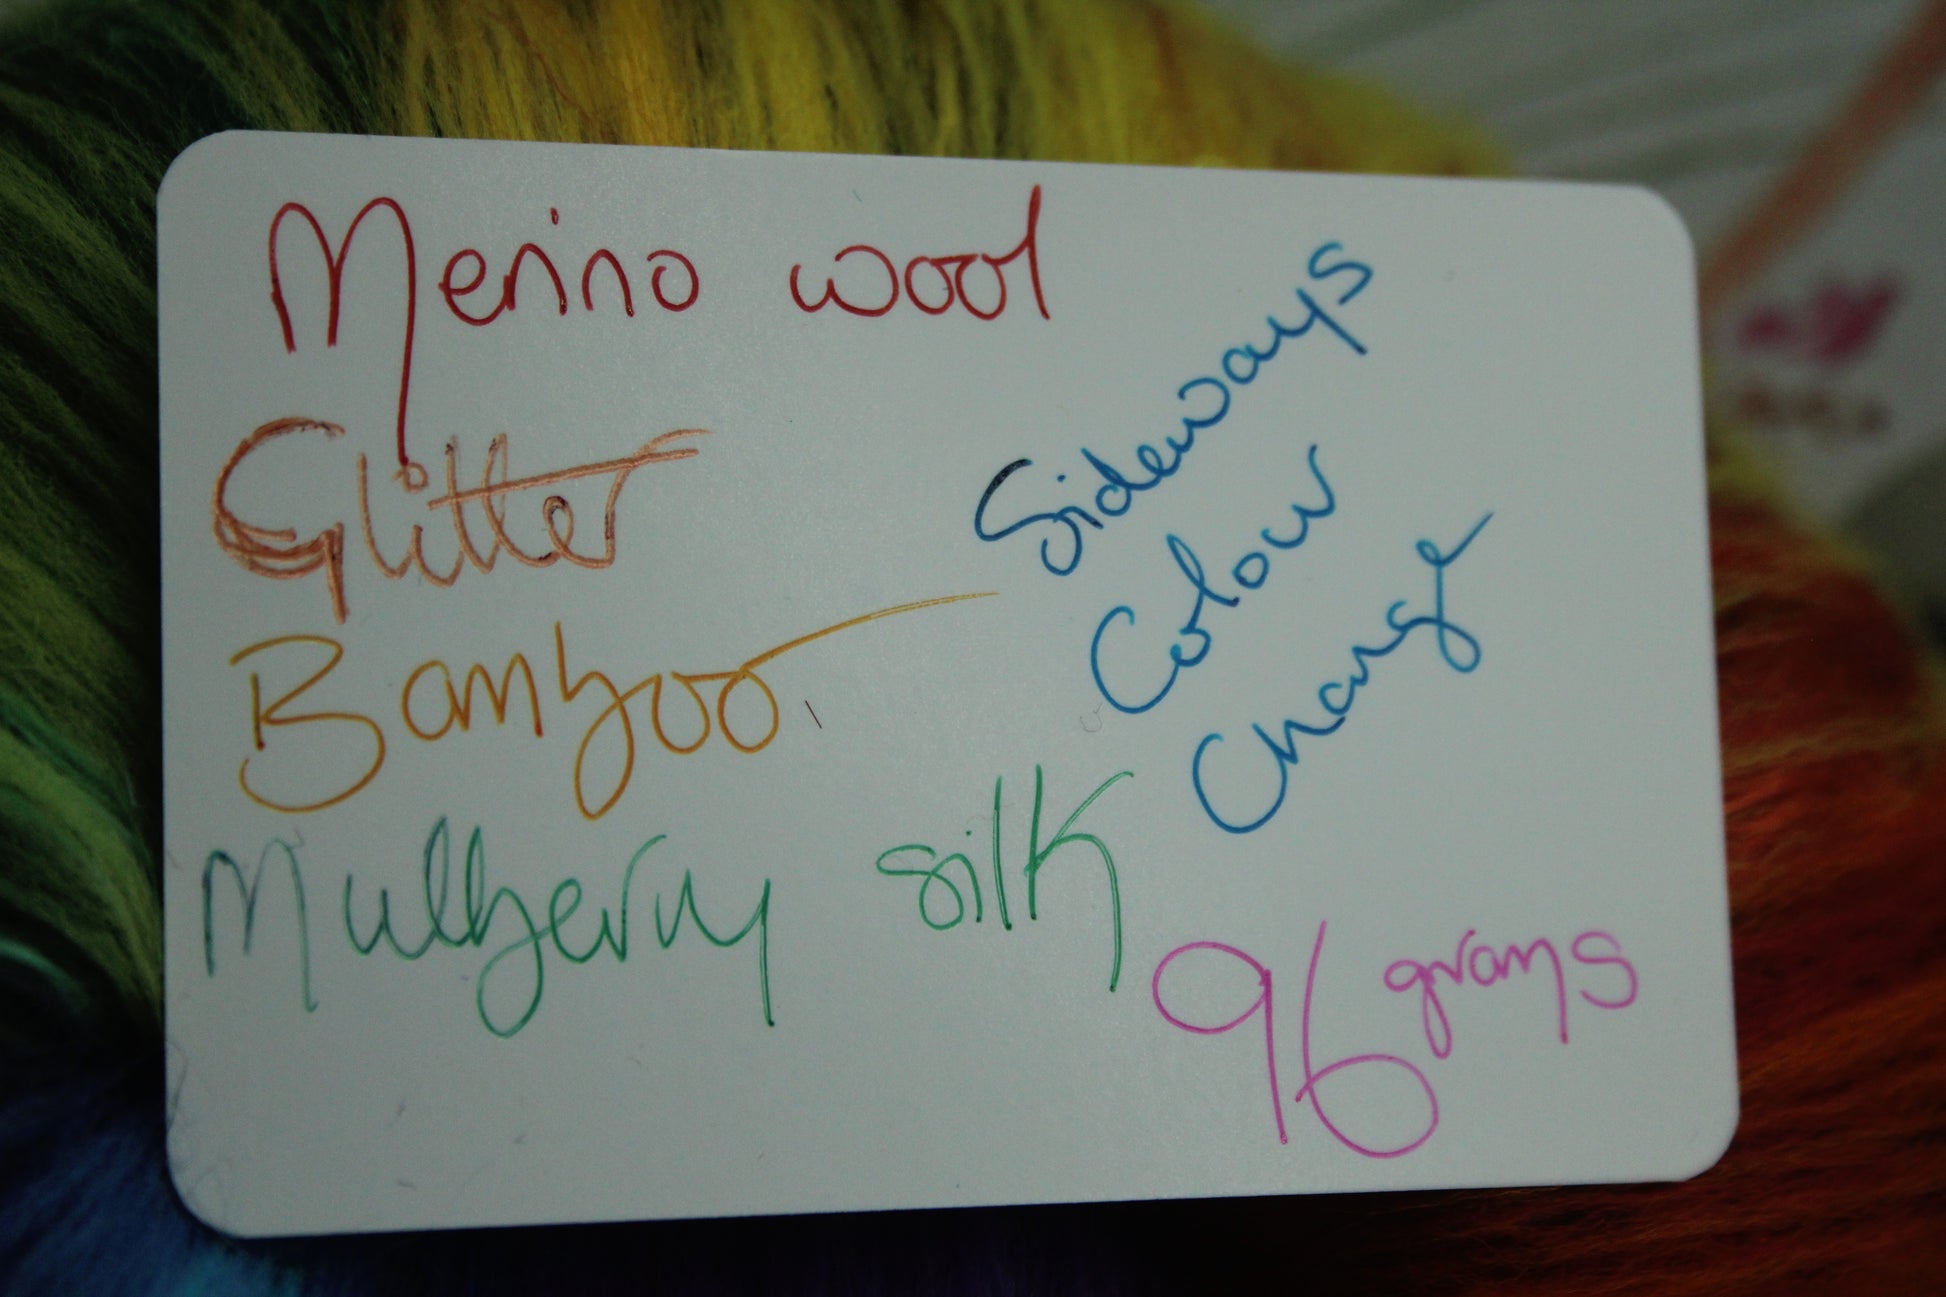 Merino wool
Glitter
Bamboo
Mulberry silk
Sideways
Colour
Change
96 grams